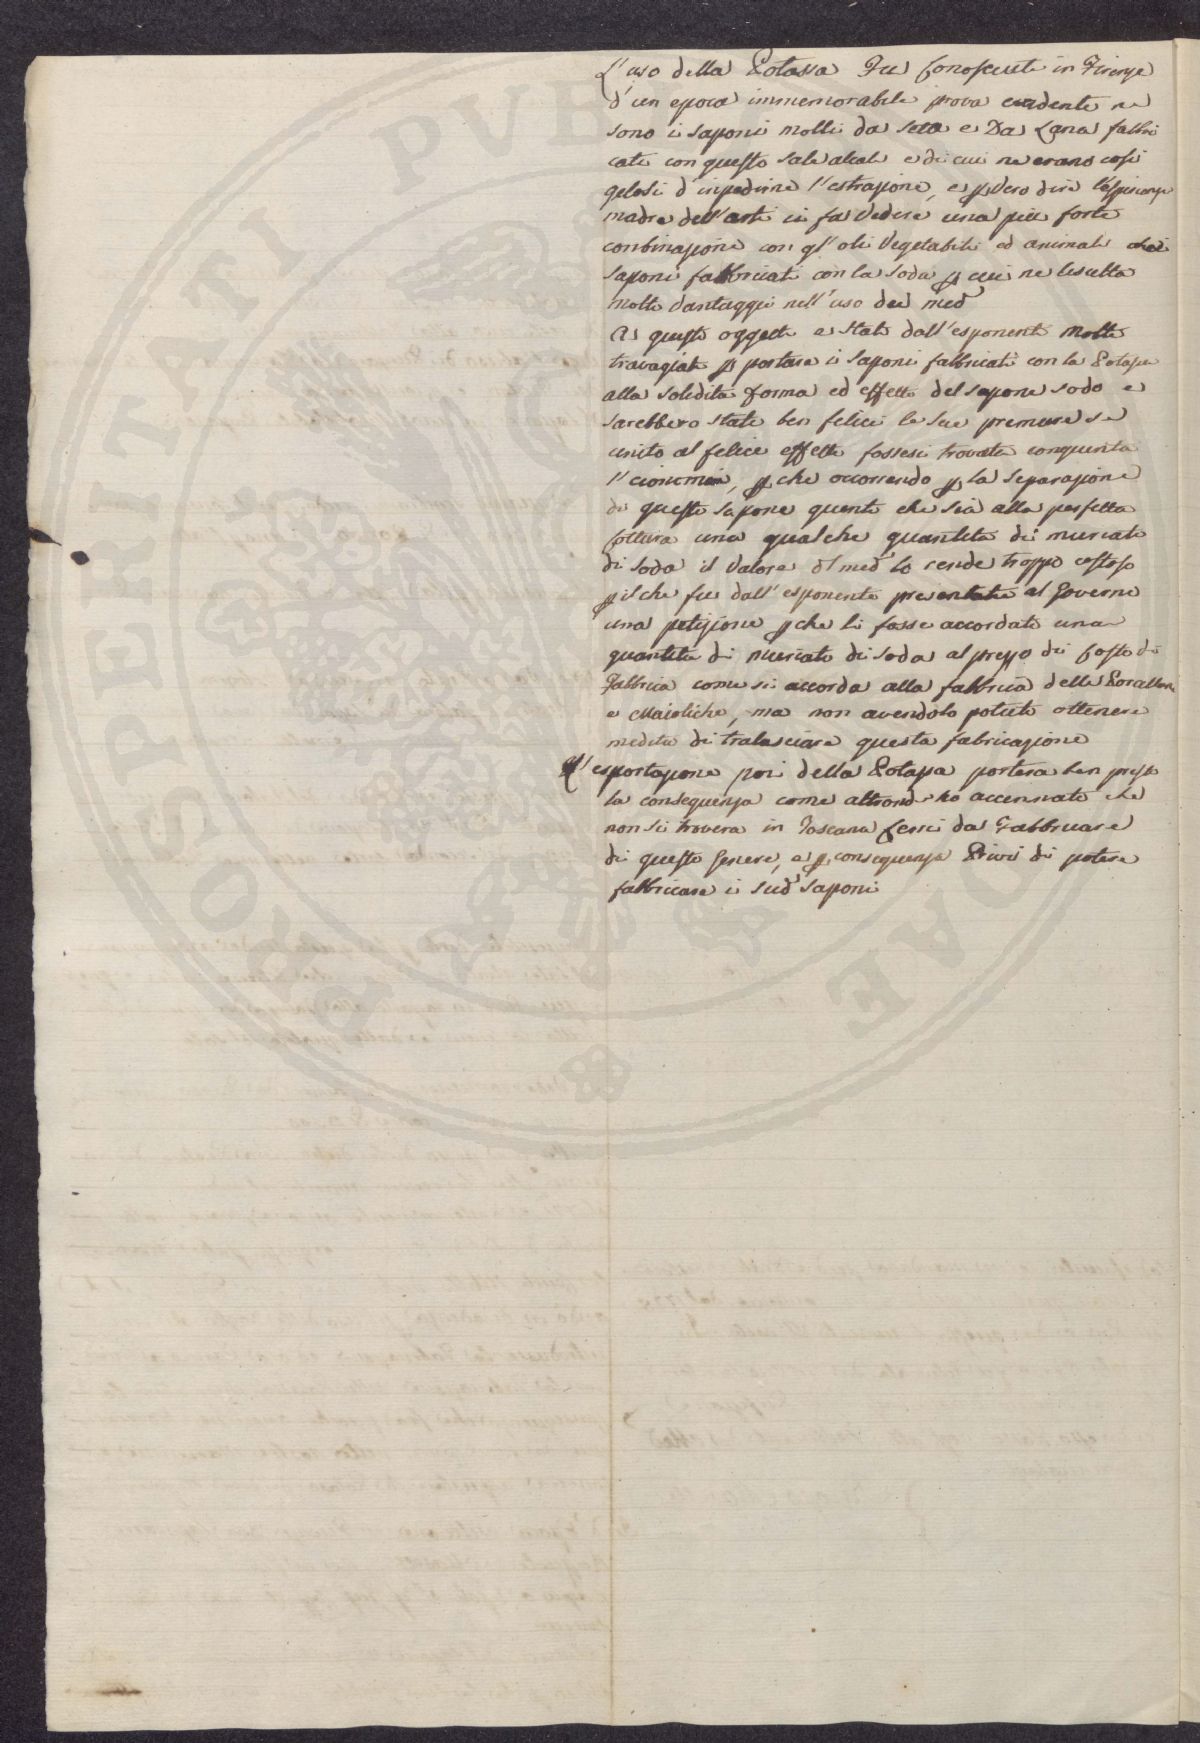 L'uso della Potassa Fu Conosciuti in Firenze
d'un epoca immemorabile prova evidente ne
sono i saponi molli da seta e Da Lana fabbri
cati con questo Sale alcali e di cui ne erano così
gelosi d'inpedirne l'estrazione, e p vero dire l'esperienza
madre dell'arti ci fa Vedere una più forte
combinazione con gl'oli Vegetabili ed animali che i
saponi fabbricati con la Soda p cui ne resulta
molti Vantaggi nell'uso dei med.i
A questi oggetti e stato dall'esponente molto
travagiato p portare i Saponi fabbricati con la Potassa
alla solidità forma ed effetto del sapone sodo e
sarebbero state ben felici le sue premure se
unito al felice effetto fossesi trovata congiunta
l'cionomia, p che occorrendo p la Separazione
di questo sapone quanto che sia alla perfetta
Cottura una qualche quantità di muriato
di Soda il Valore d med.o lo rende troppo costoso
p il che fu dall'esponente presentata al Governo
una petizione p che li fosse accordato una
quantità di muriato di Soda al prezzo di Costo di
Fabbrica come si accorda alla fabbrica delle Porcellane
e Maioliche, ma non avendolo potuto ottenere
medita di tralasciare questa fabricazione
L'esportazione poi della Potassa portera ben presto
la conseguenza come altronde ho accennato che
non si trovera in Toscana Ceneri da Fabbricare
di questo Genere, e p conseguenza Privi di potere
fabbricare i sud.i Saponi